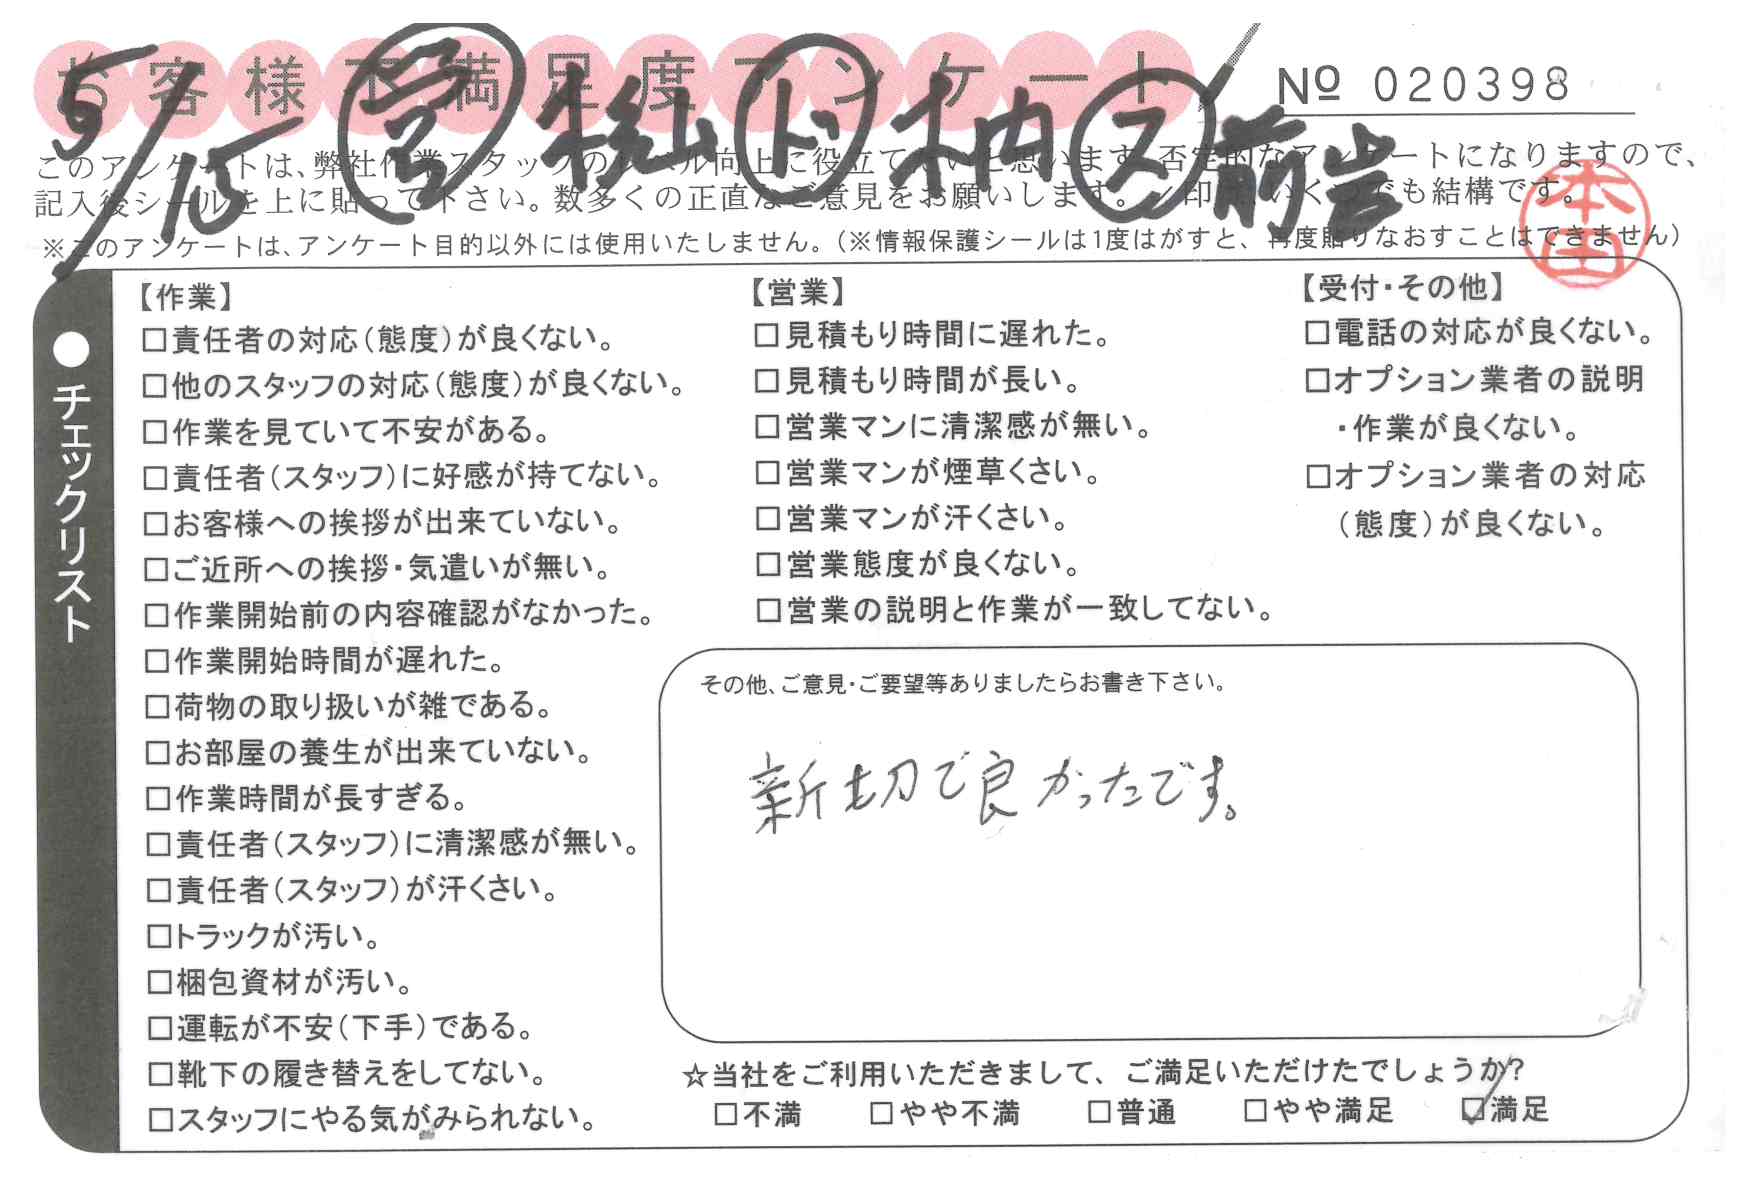 お客様不満足度アンケート
№ 020398
5/15 営 桧山 ド 木村 ス 前岩
このアンケートは、弊社作業スタッフのレベル向上に役立てたいと思います。否定的なアンケートになりますので、
記入後シールを上に貼って下さい。数多くの正直なご意見をお願いします。✓印はいくつでも結構です。
※このアンケートは、アンケート目的以外には使用いたしません。(※情報保護シールは1度はがすと、再度貼りなおすことはできません)
●チェックリスト
【作業】
□責任者の対応(態度)が良くない。
□他のスタッフの対応(態度)が良くない。
□作業を見ていて不安がある。
□責任者(スタッフ)に好感が持てない。
□お客様への挨拶が出来ていない。
□ご近所への挨拶・気遣いが無い。
□作業開始前の内容確認がなかった。
□作業開始時間が遅れた。
□荷物の取り扱いが雑である。
□お部屋の養生が出来ていない。
□作業時間が長すぎる。
□責任者(スタッフ)に清潔感が無い。
□責任者(スタッフ)が汗くさい。
□トラックが汚い。
□梱包資材が汚い。
□運転が不安(下手)である。
□靴下の履き替えをしてない。
□スタッフにやる気がみられない。
【営業】
□見積もり時間に遅れた。
□見積もり時間が長い。
□営業マンに清潔感が無い。
□営業マンが煙草くさい。
□営業マンが汗くさい。
□営業態度が良くない。
□営業の説明と作業が一致してない。
【受付・その他】
□電話の対応が良くない。
□オプション業者の説明
・作業が良くない。
□オプション業者の対応
(態度)が良くない。
その他、ご意見・ご要望等ありましたらお書き下さい。
新切で良かったです。
☆当社をご利用いただきまして、ご満足いただけたでしょうか?
□不満 □やや不満 □普通 □やや満足 ☑満足